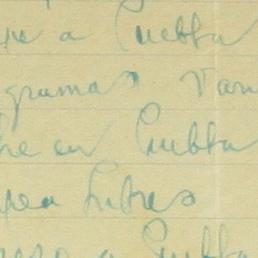 a Puebla
gramas van
re en Puebla
pea Libres
reso a Puebla